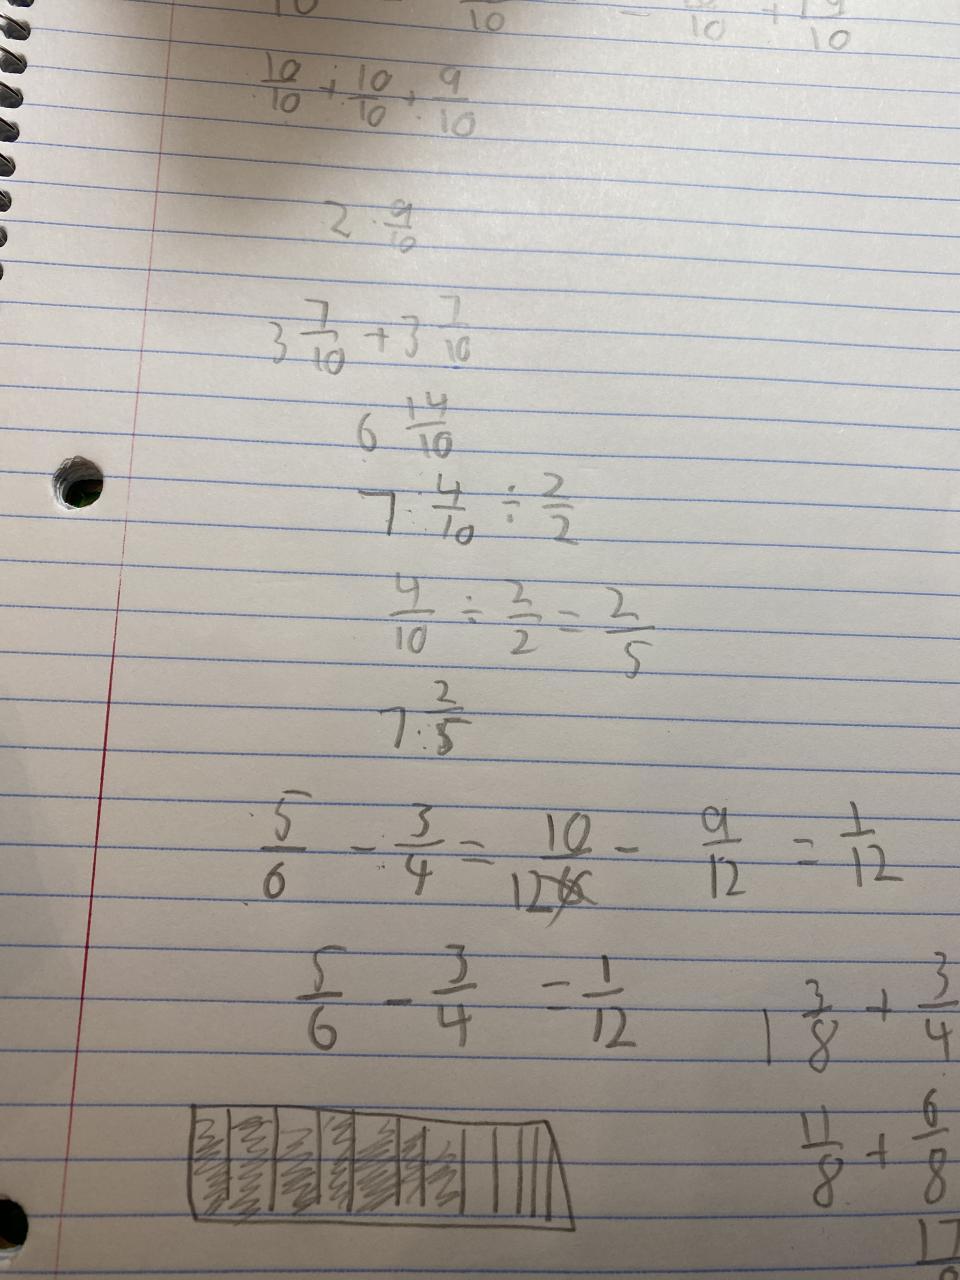 10/10 + 10/10 + 9/10
2 9/10
3 7/10 + 3 7/10
6 14/10
7 4/10 ÷ 2/2
4/10 ÷ 2/2 = 2/5
7 2/5
5/6 - 3/4 = 10/12 - 9/12 = 1/12
5/6 - 3/4 = 1/12
1 3/8 + 3/4
11/8 + 6/8
17